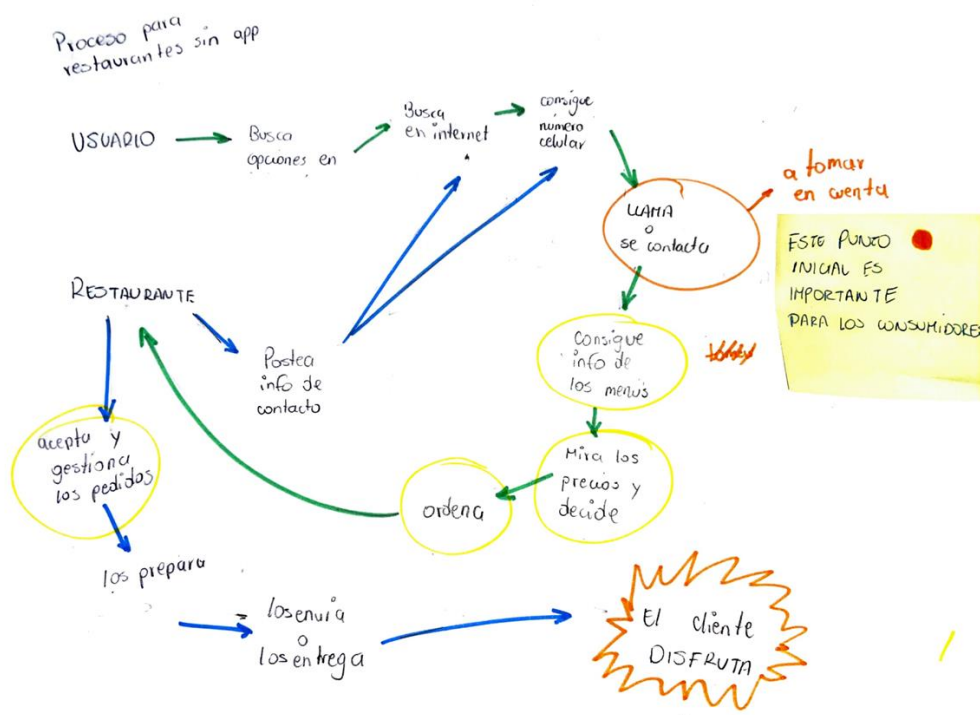 Proceso para
restaurantes sin app
USUARIO
Busca
opciones en
Busca
en internet
consigue
número
celular
LLAMA
o
se contacta
a tomar
en cuenta
ESTE PUNTO
INICIAL ES
IMPORTANTE
PARA LOS CONSUMIDORES
RESTAURANTE
Postea
info de
contacto
Consigue
info de
los menús
Mira los
precios y
decide
ordena
acepta y
gestiona
los pedidos
los prepara
los envía
o
los entrega
El cliente
DISFRUTA